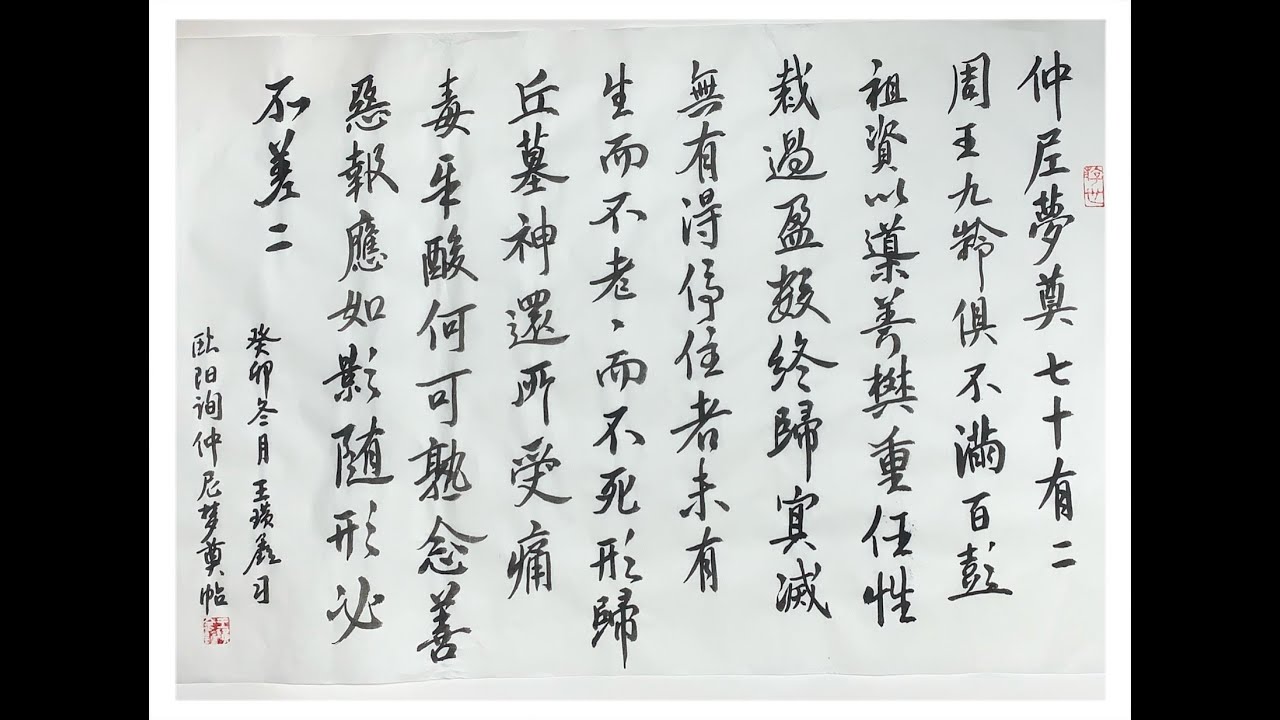 仲尼夢奠七十有二
周王九齡俱不滿百彭
祖資以導養樊重任性
裁過盈數終歸冥滅
無有得停住者未有
生而不老、而不死形歸
丘墓神還所受痛
毒辛酸何可熟念善
惡報應如影随形必
不差二
癸卯冬月王习
欧阳询仲尼梦奠帖